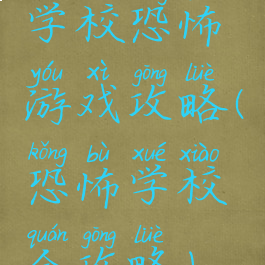 学校恐怖
yóu xì gōng lüè
游戏攻略(
kǒng bù xué xiào
恐怖学校
quán gōng lüè
全攻略)